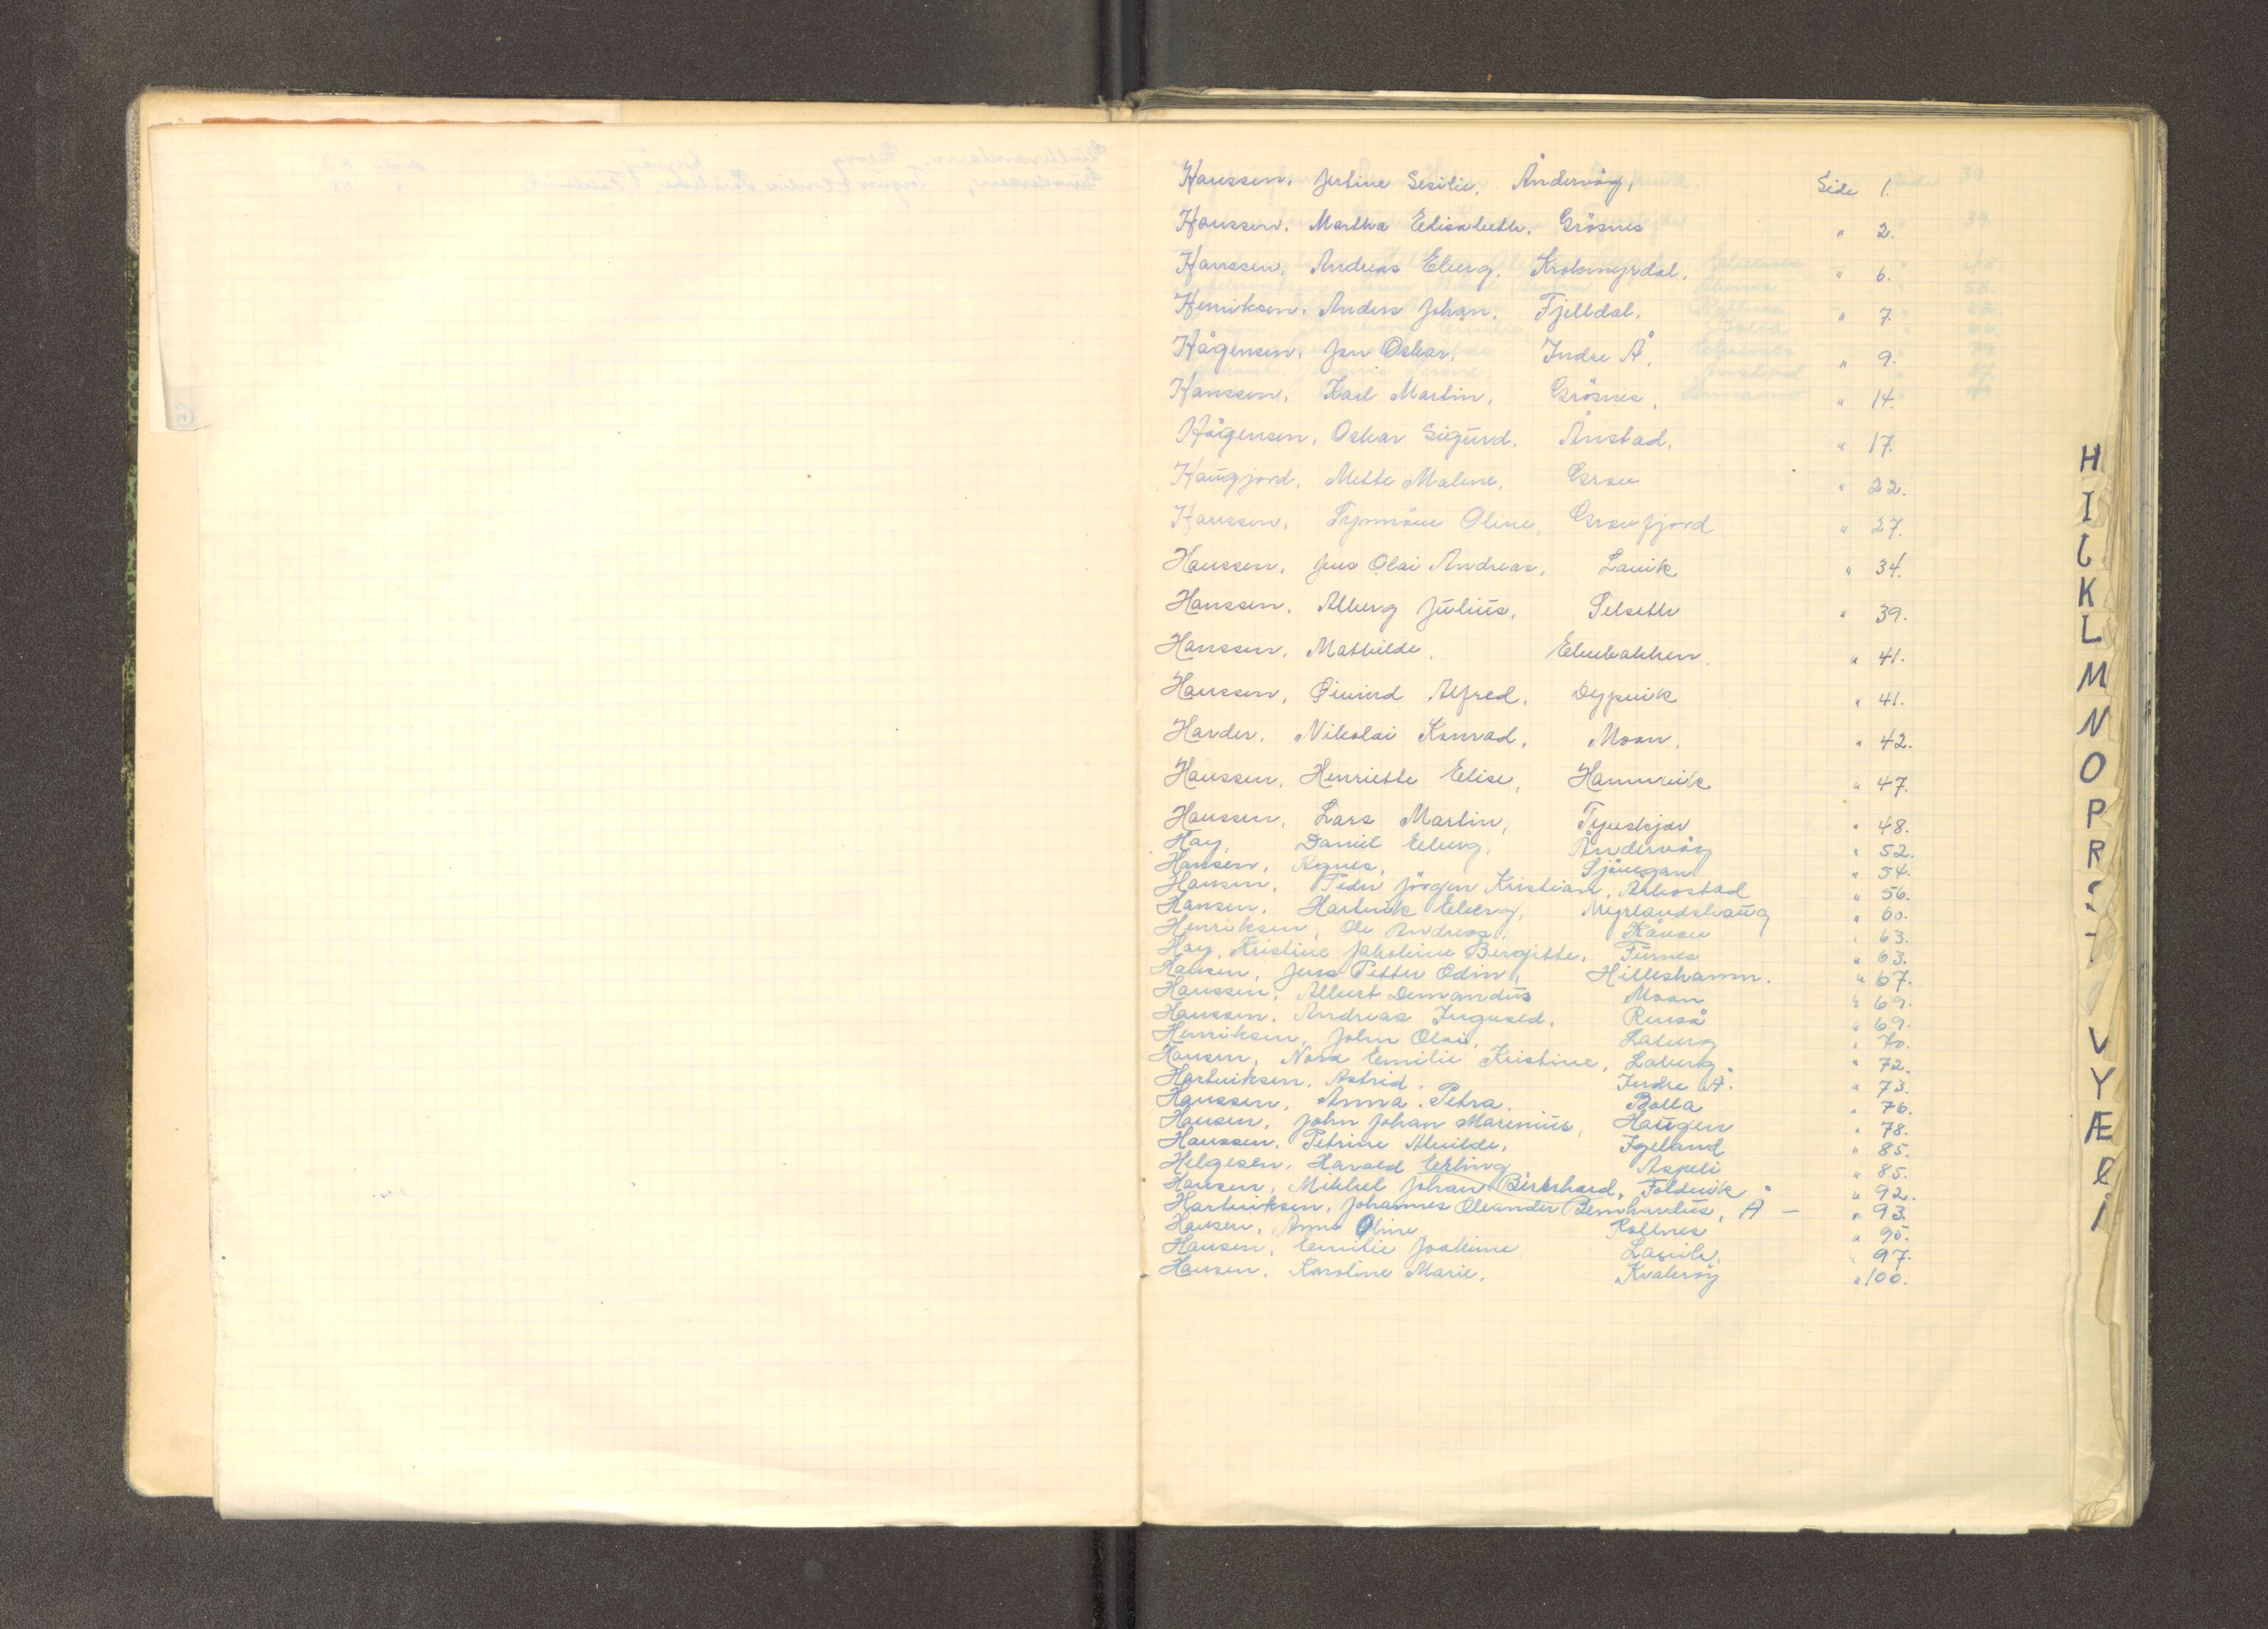 Hanssen, Jertine Sesilie, Åndervåg, Side 1.
Hanssen, Martha Elisabeth, Grösnes " 2.
Hanssen, Andreas Eberg, Krokmyrdal, " 6.
Henriksen, Anders Johan, Fjelldal, " 7.
Hågensen, Jen Oskar, Indre Å, " 9.
Hanssen, Karl Martin, Grösnes, " 14.
Hågensen, Oskar Sigurd, Ånstad, " 17.
Haugjord, Mette Malene, Grov " 22.
Hanssen, Oline, Grovfjord " 27.
Hanssen, Jens Olai Andreas, Lavik " 34.
Hanssen, Alberg Julius, Selseth " 39.
Hanssen, Mathilde, Elvebakken, " 41.
Hanssen, Øivind Alfred, Dypvik " 41.
Harder, Nikolai Konrad, Moan, " 42.
Hanssen, Henriette Elise, Hamnvik " 47.
Hanssen, Lars Martin, Tjuvskjær " 48.
Hay, Daniel Eberg, Åndervåg " 52.
Hansen, Agnes, Sjövegan " 54.
Hansen, Peder Jörgen Kristian, Arbostad " 56.
Hansen, Hartvik Eberg, Myrlandshaug " 60.
Henriksen, Ole Andreas, Rånov " 63.
Hay, Kristine Jakobine Bergitte, Furnes " 63.
Hansen, Jens Petter Odin, Hilleshamn. " 67.
Hanssen, Albert Demandus Moan " 69.
Hanssen, Andreas Inguald, Renså " 69.
Henriksen, John Olai, Laberg " 70.
Hansen, Nora Emilie Kristine, Laberg " 72.
Hartviksen, Astrid, Indre Å. " 73.
Hanssen, Anna Petra, Bolla " 76.
Hansen, John Johan Marenius, Haugen " 78.
Hanssen, Petrine Alvilde, Igeland " 85.
Helgesen, Harald Erling Aspeli " 85.
Hansen, Mikkel Johan Birkhard, Foldvik " 92.
Hartviksen, Johannes Oleander Bernhardus, Å — " 93.
Hansen, Anna Oline Rollnes " 95.
Hansen, Emilie Joakime Lavik, " 97.
Hansen, Karoline Marie, Kvalsvåg " 100.
H
I
J
K
L
M
N
O
P
R
S
T
V
Y
Æ
Ø
Å